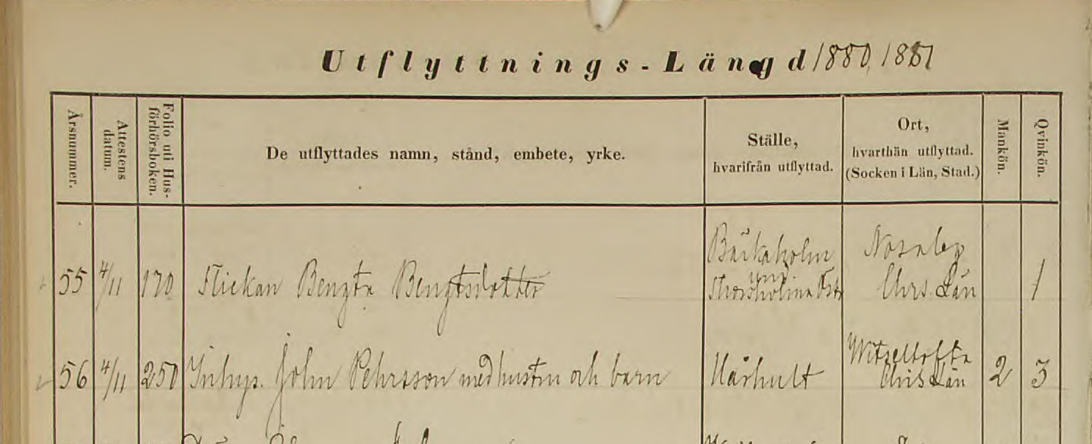 Utflyttnings-Längd 1880, 1881
Årsnummer.
Attestens datum.
Folio uti Husförhörsboken.
De utflyttades namn, stånd, embete, yrke.
Ställe,
hvarifrån utflyttad.
Ort,
hvarthän utflyttad.
(Socken i Län, Stad.)
Mankön.
Qvinkön.
55 4/11 170 Flickan Bengta Bengtsdotter
Nosaby
Chrs. Län
1
56 4/11 250 Inhys. John Pehrsson med hustru och barn
Hårhult
Witseltofta
Chris Län
2 3